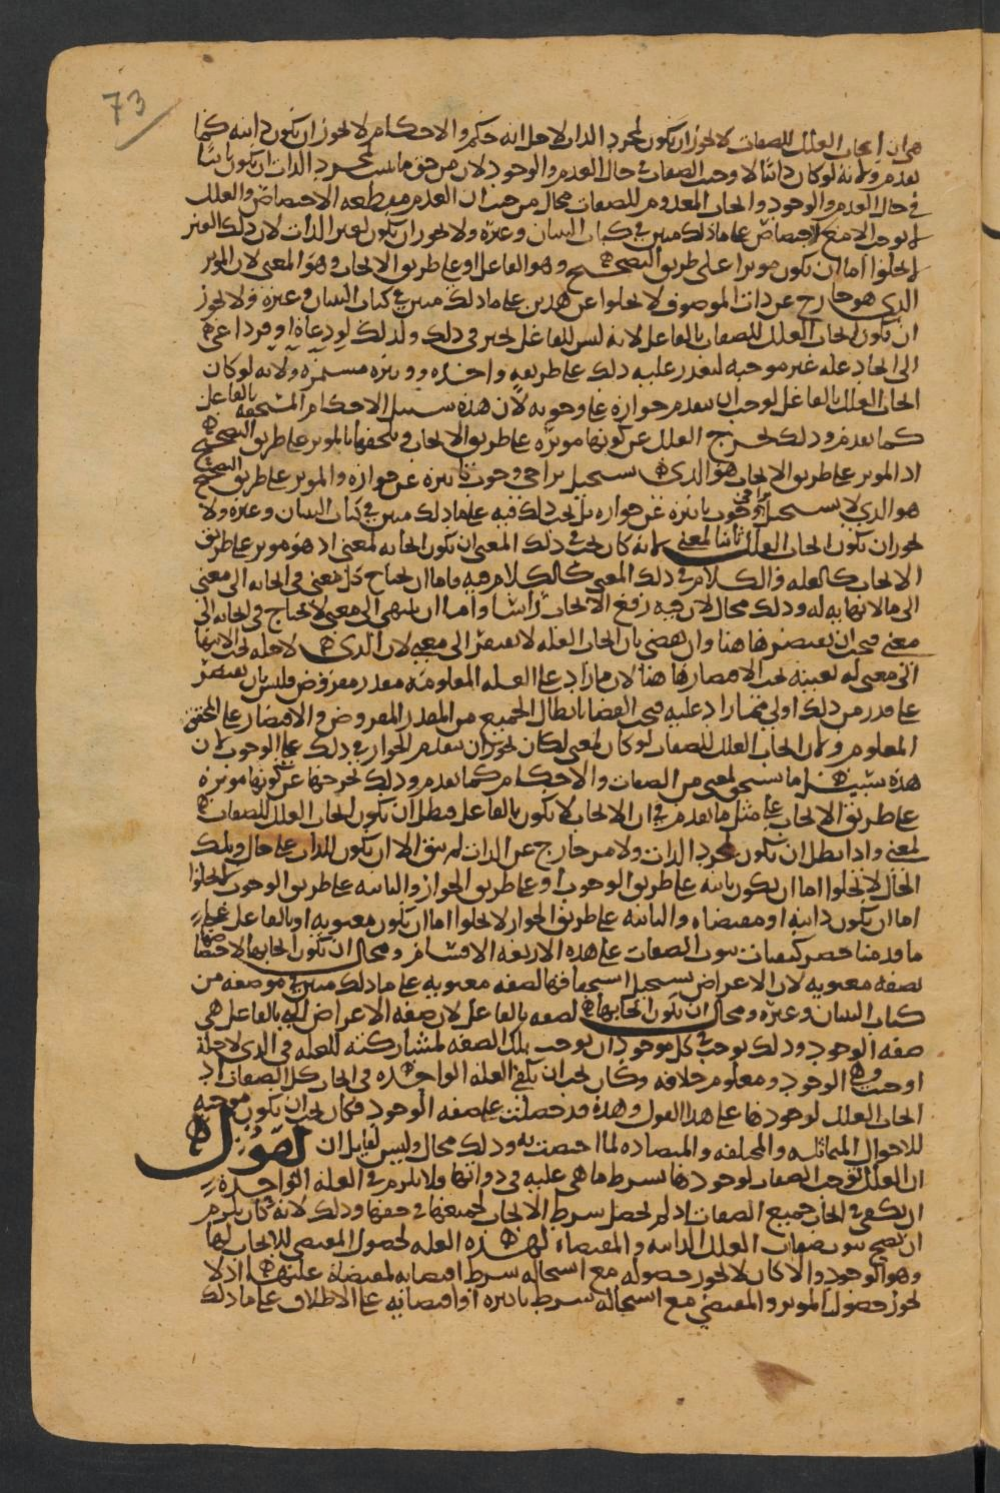 73
هي ان ايجاب العلل للصفات لا يجوز ان يكون لمجرد الذات لاجل انه حكم والاحكام لا يجوز ان تكون ذاتية كما
تقدم ولانه لو كان ذاتيا لاوجب الصفات في حال العدم والوجود لان من حق ما يثبت لمجرد الذات ان يكون ثابتا
في حال العدم والوجود وايجاب المعدوم للصفات محال من حيث ان العدم مقطعه الاختصاص والعلل
لا توجب الا مع الاختصاص على ما ذلك مبين في كتاب البيان وغيره ولا يجوز ان يكون لغير الذات لان ذلك الغير
لا يخلوا اما ان يكون موثرا على طريق التصحيح وهو الفاعل او على طريق الايجاب وهو المعنى لان الموثر
الذي هو خارج عن ذات الموصوف لا يخلوا عن هذين على ما ذلك مبين في كتاب البيان وغيره ولا يجوز
ان يكون ايجاب العلل للصفات بالفاعل لانه ليس للفاعل خير في ذلك ولذلك لو دعاه اوفر داعي
الى ايجاد علة غير موجبة لتعذر عليه ذلك على طريقة واحدة ووتيرة مستمرة ولانه لو كان
ايجاب العلل بالفاعل لوجب ان يتقدم جوازه على وجوبه لان هذه سبيل الاحكام المستحقة بالفاعل
كما تقدم وذلك يخرج العلل عن كونها موثرة على طريق الايجاب ويلحقها بالموثر على طريق التصحيح
اذ الموثر على طريق الايجاب هو الذي يستحيل تراخي وجوب تاثيره عن جوازه والموثر على طريق التصحيح
هو الذي لا يستحيل تراخي وجوب تاثيره عن جوازه بل يجب ذلك فيه على ما ذلك مبين في كتاب البيان وغيره ولا
يجوز ان يكون ايجاب العلل ثابتا لمعنى لانه كان يجب في ذلك المعنى ان يكون ايجابه لمعنى اذ هو موثر على طريق
الايجاب كالعلة والكلام في ذلك المعنى كالكلام فيه فاما ان يحتاج كل معنى في ايجابه الى معنى
الى ما لا نهاية له وذلك محال لان فيه رفع الايجاب راسا واما ان ينتهي الى معنى لا يحتاج في ايجابه الى
معنى فيجب ان يقتصر هاهنا وان يقضي بان ايجاب العلة لا يفتقر الى معنى لان الذي لاجله يجب الانتها
الى معنى له بعينه يجب الاقتصار هاهنا لان ما زاد على العلة المعلومة مقدر مفروض وليس بان يقتصر
على قدر من ذلك اولى مما زاد عليه فيجب القضا بابطال الجميع من المقدر المفروض والاقتصار على المحقق
المعلوم ولان ايجاب العلل للصفات لو كان لمعنى لكان يجوز ان يتقدم الجواز في ذلك على الوجوب لان
هذه سبيل ما يستحق لمعنى من الصفات والاحكام كما تقدم وذلك يخرجها عن كونها موثرة
على طريق الايجاب على مثل ما تقدم في ان الايجاب لا يكون بالفاعل فبطل ان يكون ايجاب العلل للصفات
لمعنى واذا بطل ان يكون لمجرد الذات ولا مر خارج عن الذات لم يبق الا ان يكون للذات على حال وتلك
الحال لا يخلوا اما ان يكون ثابتة على طريق الوجوب او على طريق الجواز والثابتة على طريق الوجوب لا يخلوا
اما ان يكون ذاتية او مقتضاة والثابتة على طريق الجواز لا يخلوا اما ان يكون معنوية او بالفاعل على
ما قدمنا حصر كيفيات ثبوت الصفات على هذه الاربعة الاقسام ومحال ان يكون ايجابها لاختصاصها
بصفة معنوية لان الاعراض يستحيل استحقاقها لصفة معنوية على ما ذلك مبين في موضعه من
كتاب البيان وغيره ومحال ان يكون ايجابها لصفة بالفاعل لان صفة الاعراض التي بالفاعل هي
صفة الوجود وذلك يوجب في كل موجود ان يوجب تلك الصفة لمشاركته للعلة في الذي لاجله
اوجبت وهو الوجود ومعلوم خلافه وكان يجب ان تكفي العلة الواحدة في ايجاب كل الصفات اذ
ايجاب العلل لوجودها على هذا القول وهذه قد حصلت على صفة الوجود فكان يجب ان يكون موجبة
للاحوال المتماثلة والمختلفة والمتضادة لما اختصت به وذلك محال وليس لقايل ان يقول
ان العلل توجب الصفات لوجودها بشرط ما هي عليه في ذواتها ولا يلزم في العلة الواحدة
ان تكفي في ايجاب جميع الصفات اذ لم يحصل شرط الايجاب لجميعها في حقها وذلك لانه كان يلزم
ان يصح ثبوت صفات العلل الذاتية والمقتضاة لهذه العلة لحصول المقتضي للايجاب لها
وهو الوجود والا كان لا يجوز حصوله مع استحالة شرط اقتضائه لمقتضاه علتها اذ لا
يجوز حصول الموثر والمقتضي مع استحالة شرط تاثيره او اقتضائه على الاطلاق على ما ذلك